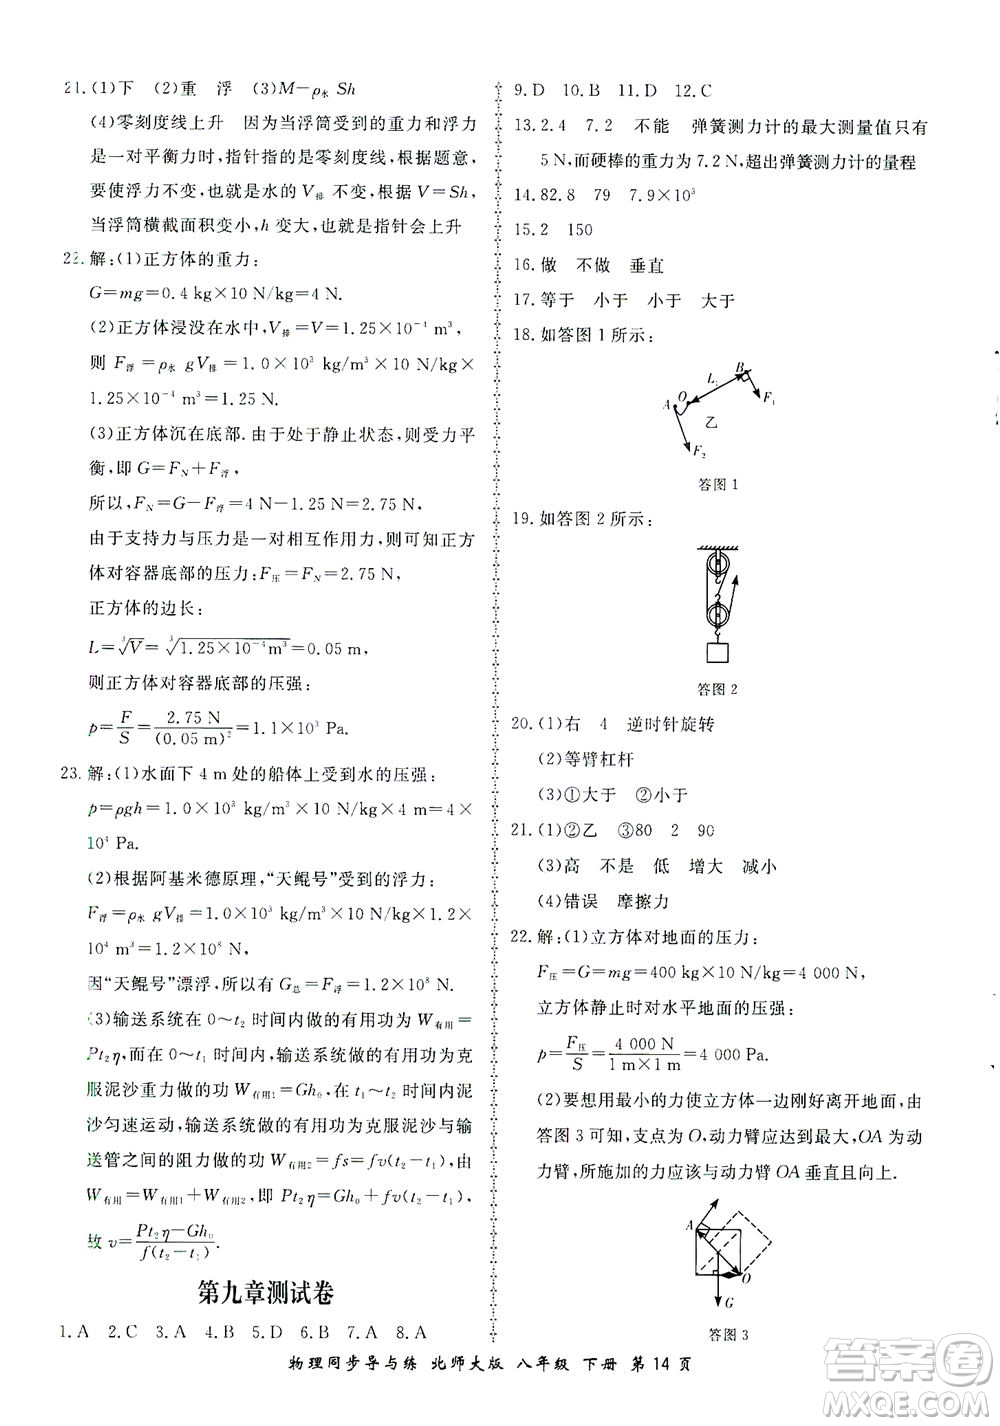 21. (1)下　(2)重　浮　(3)M－ρ水 Sh
(4)零刻度线上升　因为当浮筒受到的重力和浮力
是一对平衡力时,指针指的是零刻度线,根据题意,
要使浮力不变,也就是水的 V排 不变,根据 V=Sh,
当浮筒横截面积变小,h 变大,也就是指针会上升
22. 解:(1)正方体的重力:
G=mg=0.4 kg×10 N/kg=4 N.
(2)正方体浸没在水中,V排=V=1.25×10⁻⁴ m³,
则 F浮=ρ水 gV排=1.0×10³ kg/m³×10 N/kg×
1.25×10⁻⁴ m³=1.25 N.
(3)正方体沉在底部.由于处于静止状态,则受力平
衡,即 G=F_N+F浮,
所以,F_N=G－F浮=4 N－1.25 N=2.75 N.
由于支持力与压力是一对相互作用力,则可知正方
体对容器底部的压力:F压=F_N=2.75 N,
正方体的边长:
L=∛V=∛(1.25×10⁻⁴m³)=0.05 m,
则正方体对容器底部的压强:
p=F/S=2.75 N/(0.05 m)²=1.1×10³ Pa.
23. 解:(1)水面下 4 m 处的船体上受到水的压强:
p=ρgh=1.0×10³ kg/m³×10 N/kg×4 m=4×
10⁴ Pa.
(2)根据阿基米德原理,“天鲲号”受到的浮力:
F浮=ρ水 gV排=1.0×10³ kg/m³×10 N/kg×1.2×
10⁴ m³=1.2×10⁸ N.
因“天鲲号”漂浮,所以有 G总=F浮=1.2×10⁸ N.
(3)输送系统在 0～t₂ 时间内做的有用功为 W有用=
Pt₂η,而在 0～t₁ 时间内,输送系统做的有用功为克
服泥沙重力做的功 W有用1=Gh₀,在 t₁～t₂ 时间内泥
沙匀速运动,输送系统做的有用功为克服泥沙与输
送管之间的阻力做的功 W有用2=fs=fv(t₂－t₁),由
W有用=W有用1+W有用2,即 Pt₂η=Gh₀+fv(t₂－t₁),
故 v=(Pt₂η－Gh₀)/f(t₂－t₁).
第九章测试卷
1. A　2. C　3. A　4. B　5. D　6. B　7. A　8. A
9. D　10. B　11. D　12. C
13. 2.4　7.2　不能　弹簧测力计的最大测量值只有
5 N,而硬棒的重力为 7.2 N,超出弹簧测力计的量程
14. 82.8　79　7.9×10³
15. 2　150
16. 做　不做　垂直
17. 等于　小于　小于　大于
18. 如答图 1 所示:
A O L₁ B F₁ F₂ 乙
答图 1
19. 如答图 2 所示:
答图 2
20. (1)右　4　逆时针旋转
(2)等臂杠杆
(3)①大于　②小于
21. (1)②乙　③80　2　90
(3)高　不是　低　增大　减小
(4)错误　摩擦力
22. 解:(1)立方体对地面的压力:
F压=G=mg=400 kg×10 N/kg=4 000 N,
立方体静止时对水平地面的压强:
p=F压/S=4 000 N/(1 m×1 m)=4 000 Pa.
(2)要想用最小的力使立方体一边刚好离开地面,由
答图 3 可知,支点为 O,动力臂应达到最大,OA 为动
力臂,所施加的力应该与动力臂 OA 垂直且向上.
A O G
答图 3
物理同步导与练　北师大版　八年级　下册　第 14 页
答案圈
MXQE.COM